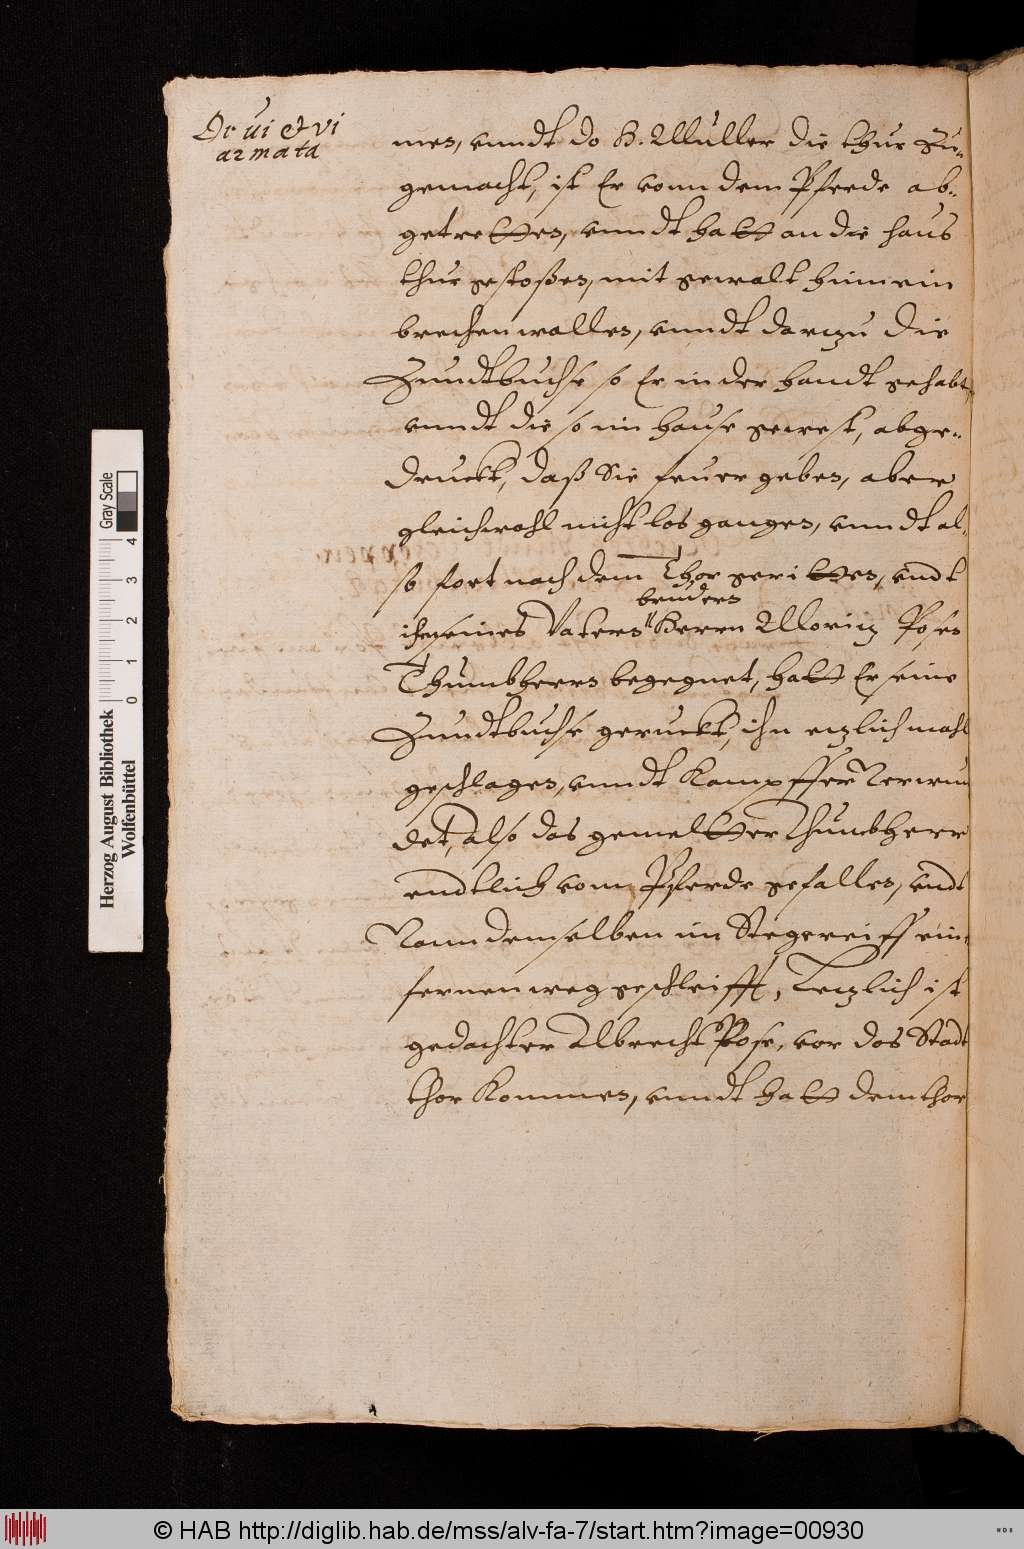 De vi et vi
armata
men, vnndt do H. Müller die thur Zu-
gemacht, ist Er vonn dem Pferde ab-
getretten, vnndt hatt an die haus
thur gestoßen, mit gewalt hinnein
brechen wollen, vnndt darzu die
Zundtbuchse so Er in der handt gehabt
vnndt die so im hause gewest, abge-
druckt, daß Sie feuer geben, aber
gleichwohl nicht los gangen, vnndt al-
so fort nach dem Thor geritten, vndt
bruders
ihm seines Vaters Herrn Moritz Posen
Thumbherrn begegnet, hatt Er seine
Zundtbuchse geruckt, ihn etzlich mahl
geschlagen, vnndt Kampffer Verwun
det, also das gemeltter Thumbherr
endtlich vom Pferde gefallen, vndt
Vonn demselben im Stegereiff ein-
fernen weg geschleifft, Letzlich ist
gedachter Albrecht Pose, vor das Stadt
thor Kommen, vnndt hatt dem thor
Herzog August Bibliothek
Wolfenbüttel
Gray Scale
0 1 2 3 4
© HAB http://diglib.hab.de/mss/alv-fa-7/start.htm?image=00930